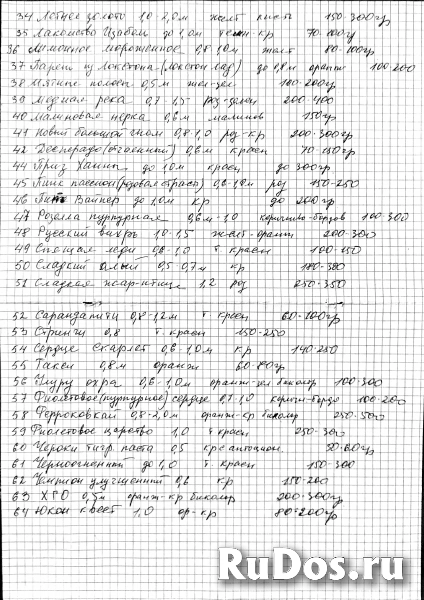 34 Летнее золото 1,0-2,0м желт кисти 150-300гр
35 Лакомство Изабель до 1,0м темн-кр 70-100гр
36 Лимонное мороженное 0,8-1,0м желт 80-100гр
37 Парень из Локстона (Локстон лад) до 0,8м оранж 100-200
38 Мятные полосы 0,5м жел-зел 100-200гр
39 Медная река 0,7-1,5 роз-зелен 200-400
40 Малиновая нерка 0,6м малинов 150гр
41 Новый большой гном 0,8-1,0 роз-кр 200-300гр
42 Десперадо (отчаянный) 0,6м красн 70-150гр
44 Приз Ханны до 1,0м красн до 300гр
45 Пинк пассион (розовая страсть) 0,6-1,2м роз 150-250
46 Пит Вайнер до 1,0м кр до 200гр
47 Розелла пурпурная 0,6м-1,0 коричнево-бордов 100-300
48 Русский вихрь 1,0-1,5 желт-оранж 200-300
49 Спящая леди 0,8-1,0 т. красн 100-150
50 Сладкий алый 0,5-0,7м кр 180-380
51 Сладкая жар-птица 1,2 роз 250-350
52 Сарандипити 0,8-1,2м т. красн 60-100гр
53 Стринги 0,8 т-красн 150-250
54 Сердце Скарлет 0,6-1,0м кр 140-250
55 Такси 0,8м оранж 60-80гр
56 Улуру охра 0,6-1,0м оранж-зел биколор 100-300
57 Фиолетовое (пурпурное) сердце 0,7-1,0 коричн-бордо 100-200
58 Ферроковкай 0,8-2,0м оранж-кр биколор 250-500
59 Фиолетовое царство 1,0 т красн 250-300
60 Чероки тигр. паста 0,5 крс антоциан. 50-60гр
61 Черноогненный до 1,0 т-красн 150-300
62 Чемпион улучшенный 0,6 кр 150-200
63 ХГО 0,5м оранж-кр биколор 200-300гр
64 Юкон квест 1,0 ор-кр 80-200гр
RuDos.ru